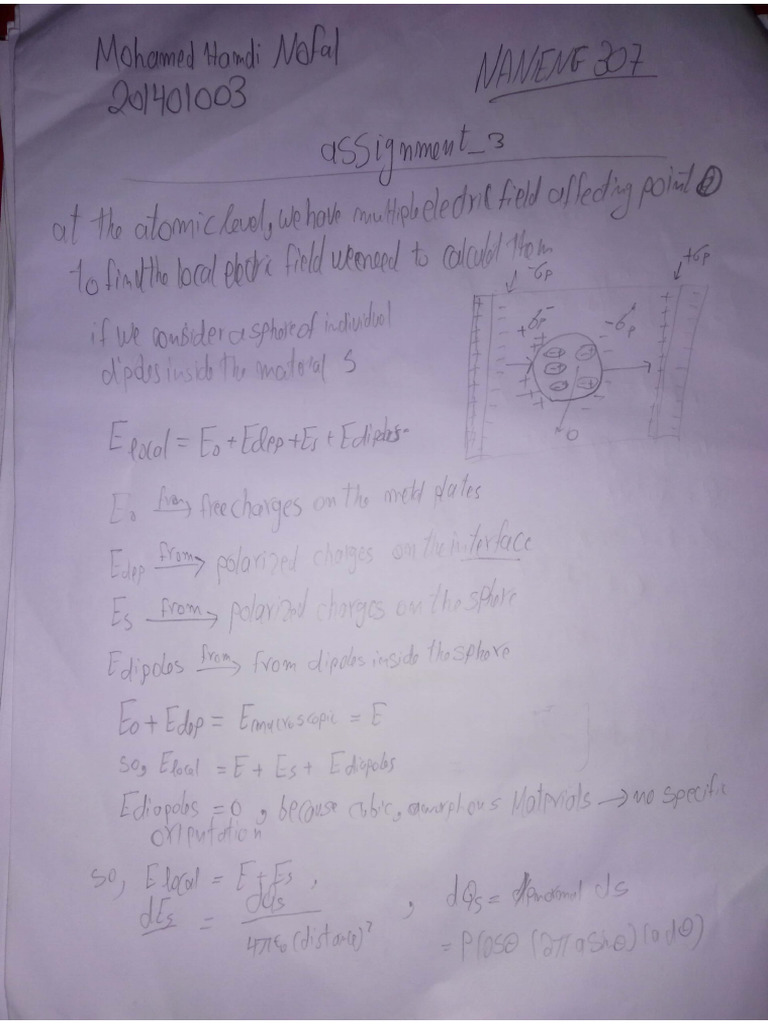 Mohamed Hamdi Nofal
NANENG 307
201401003
assignment_3
at the atomic level, we have multiple electric field affecting point O
to find the local electric field we need to calculat them
-σp
+σp
if we consider a sphere of individual
dipoles inside the material S
+σp
-σp
O
E local = E₀ + Edep + Es + Edipoles
E₀ from→ free charges on the metal plates
Edep from→ polarized charges on the interface
Es from→ polarized charges on the sphere
Edipoles from→ from dipoles inside the sphere
E₀ + Edep = Emacroscopic = E
so, Elocal = E + Es + Ediopoles
Ediopoles = 0, because cubic, amorphous Materials → no specific
so, Elocal = E + Es,
dEs = dQs / 4πε₀ (distance)²
, dQs = Pnormal ds
= P cosθ (2π a sinθ) (a dθ)